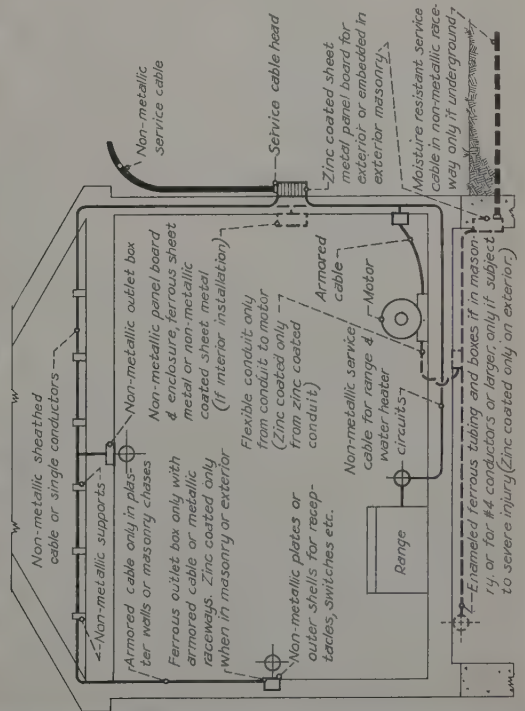 Non-metallic sheathed
cable or single conductors
Non-metallic supports
Armored cable only in plas-
ter walls or masonry chases
Ferrous outlet box only with
armored cable or metallic
raceways. Zinc coated only
when in masonry or exterior
Non-metallic plates or
outer shells for recep-
tacles, switches etc.
Non-metallic outlet box
Non-metallic panel board
& enclosure, ferrous sheet
metal or non-metallic
coated sheet metal
(If interior installation)
Flexible conduit only
from conduit to motor
(Zinc coated only
from zinc coated
conduit)
Armored
cable
Motor
Non-metallic service
cable for range &
water heater
circuits
Range
Enameled ferrous tubing and boxes if in mason-
ry, or for #4 conductors or larger, only if subject
to severe injury (Zinc coated only on exterior.)
Non-metallic
service cable
Service cable head
Zinc coated sheet
metal panel board for
exterior or embedded in
exterior masonry
Moisture resistant service
cable in non-metallic race-
way only if underground